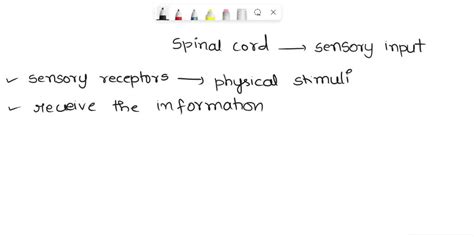 spinal cord → sensory input
✓ sensory receptors → physical stimuli
✓ receive the information